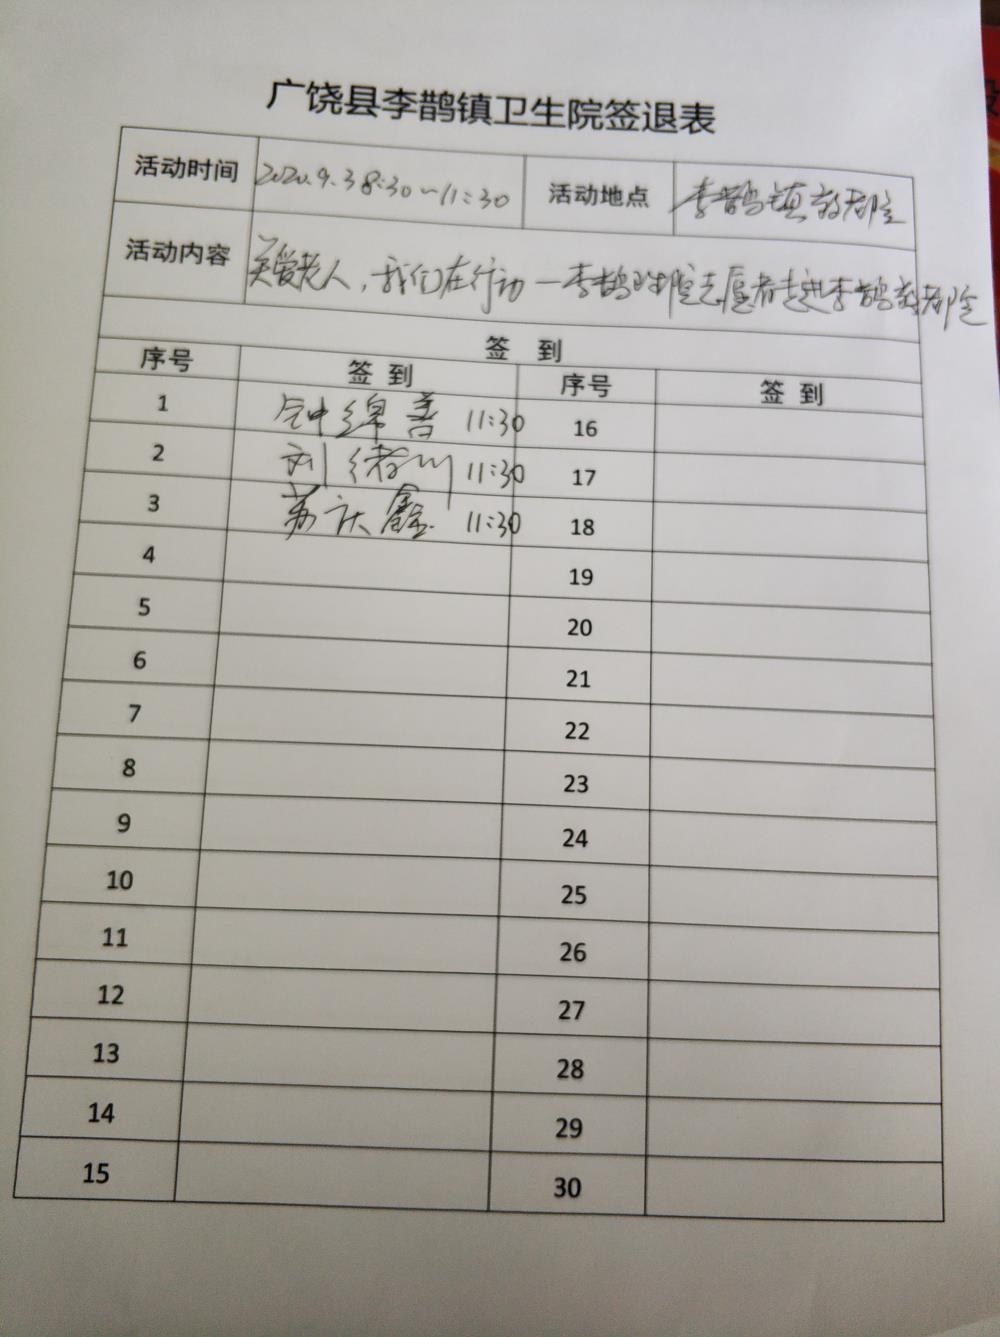 广饶县李鹊镇卫生院签退表
活动时间 2020.9.3 8:30~11:30 活动地点 李鹊镇敬老院
活动内容 关爱老人，我们在行动—李鹊 院志愿者走进李鹊敬老院
签 到
序号 签 到 序号 签 到
1 钟绵善 11:30 16
2 刘绪川 11:30 17
3 苏庆鑫 11:30 18
4 19
5 20
6 21
7 22
8 23
9 24
10 25
11 26
12 27
13 28
14 29
15 30